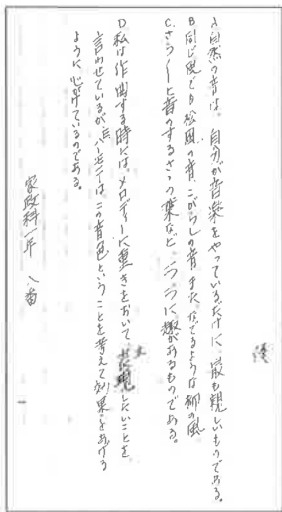 A 自然の音は、自分が音楽をやっているだけに最も親しいものである。
B 同じ風でも松風の音、こがらしの音またなでるような柳の風
C. さらさらと音のするささの葉など、一つ一つに趣があるものである。
D 私は作曲する時には、メロディーに重きをおいて表現したいことを
言わせているが、ハーモニーはこの音色ということを考えて効果をあげる
ように心掛けているのである。
家政科一年 八番